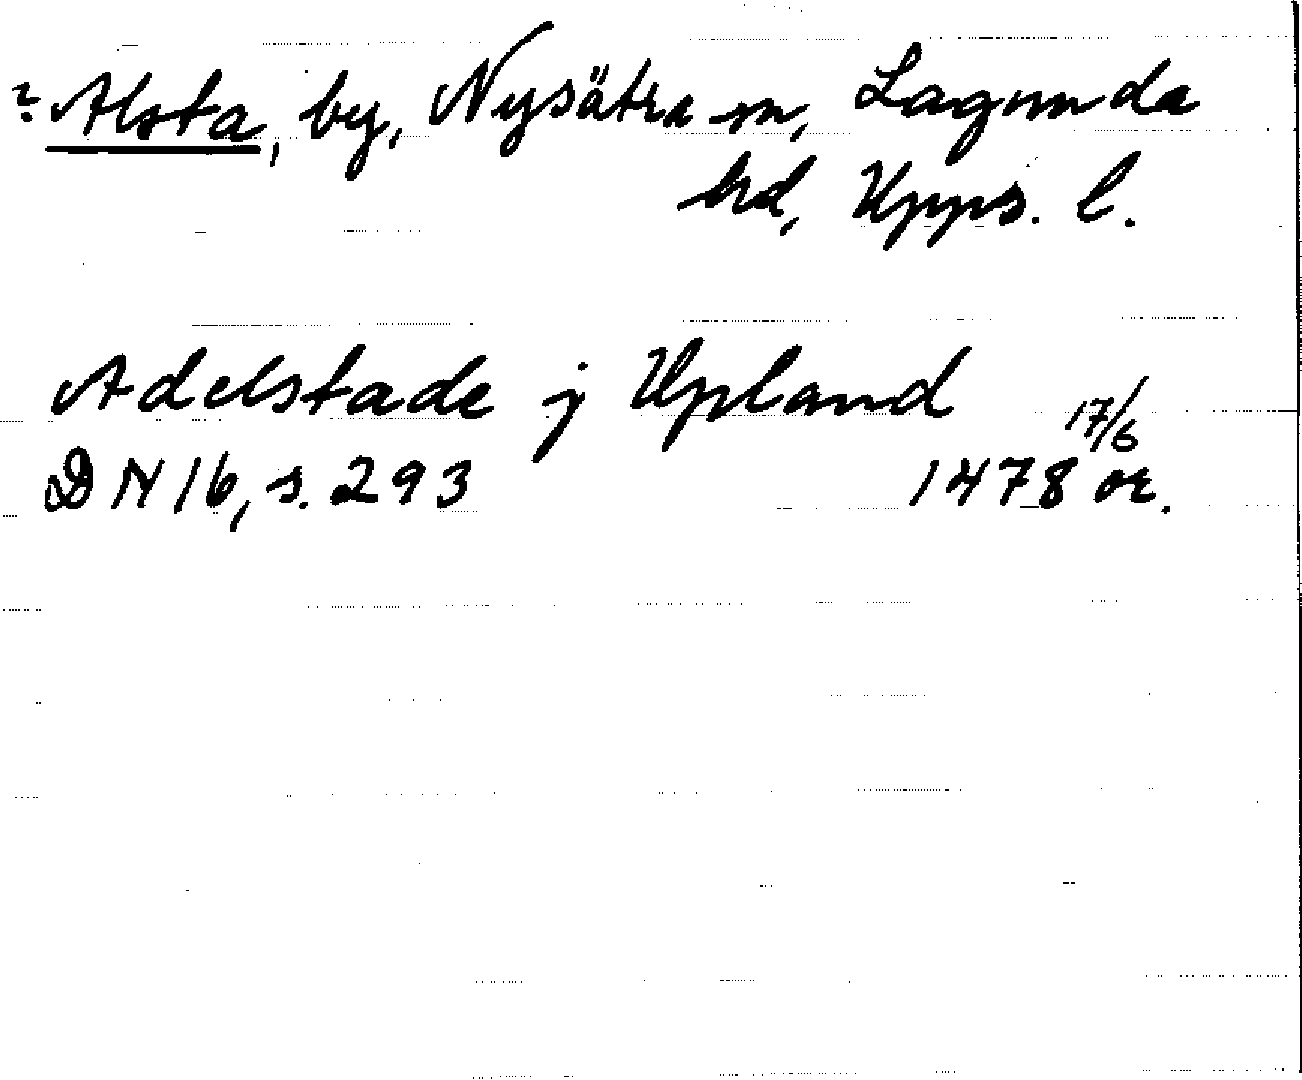 ? Alsta, by, Nysätra sn, Lagunda
hd, Upps. l.
Adelstade j Upland 17/6
DN 16, s. 293 1478 or.